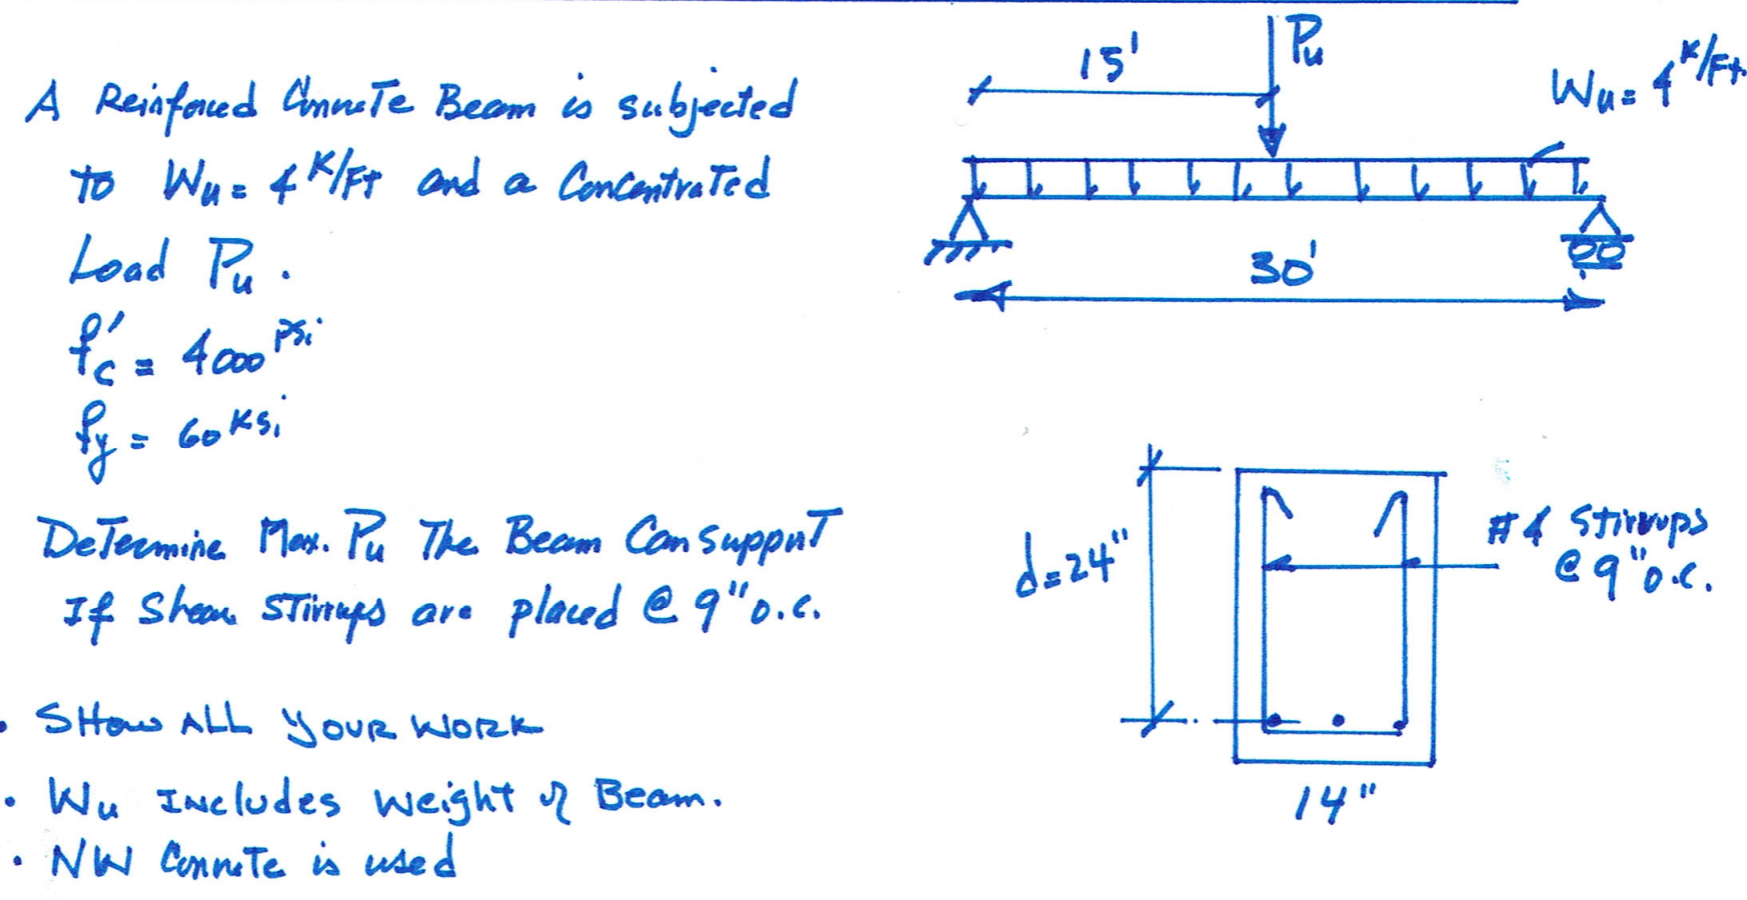 A Reinforced Concrete Beam is subjected
to Wu = 4 K/Ft and a Concentrated
Load Pu.
f'c = 4000 psi
fy = 60 ksi
Determine Max. Pu The Beam Can support
If Shear Stirrups are placed @ 9" o.c.
• SHOW ALL YOUR WORK
• Wu INCludes weight of Beam.
• NW Concrete is used
Pu
15'
Wu = 4 K/Ft.
30'
d=24"
#4 Stirrups
@ 9" o.c.
14"